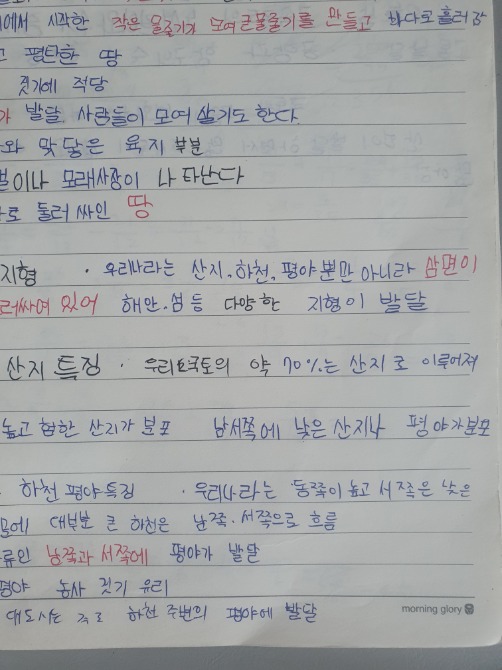 에서 시작한 작은 물줄기가 모여 큰물줄기를 만들고 바다로 흘러가
고 평탄한 땅
짓기에 적당
가 발달 사람들이 모여 살기도 한다
와 맞닿은 육지 부분
벌이나 모래사장이 나타난다
로 둘러싸인 땅
지형 · 우리나라는 산지, 하천, 평야뿐만 아니라 삼면이
러싸여 있어 해안·섬 등 다양한 지형이 발달
산지 특징 · 우리 국토의 약 70%는 산지로 이루어져
높고 험한 산지가 분포 남서쪽에 낮은 산지나 평야가 분포
· 하천 평야특징 · 우리나라는 동쪽이 높고 서쪽은 낮은
문에 대부분 큰 하천은 남쪽·서쪽으로 흐름
류인 남쪽과 서쪽에 평야가 발달
평야 농사 짓기 유리
대도시는 주로 하천 주변의 평야에 발달
morning glory